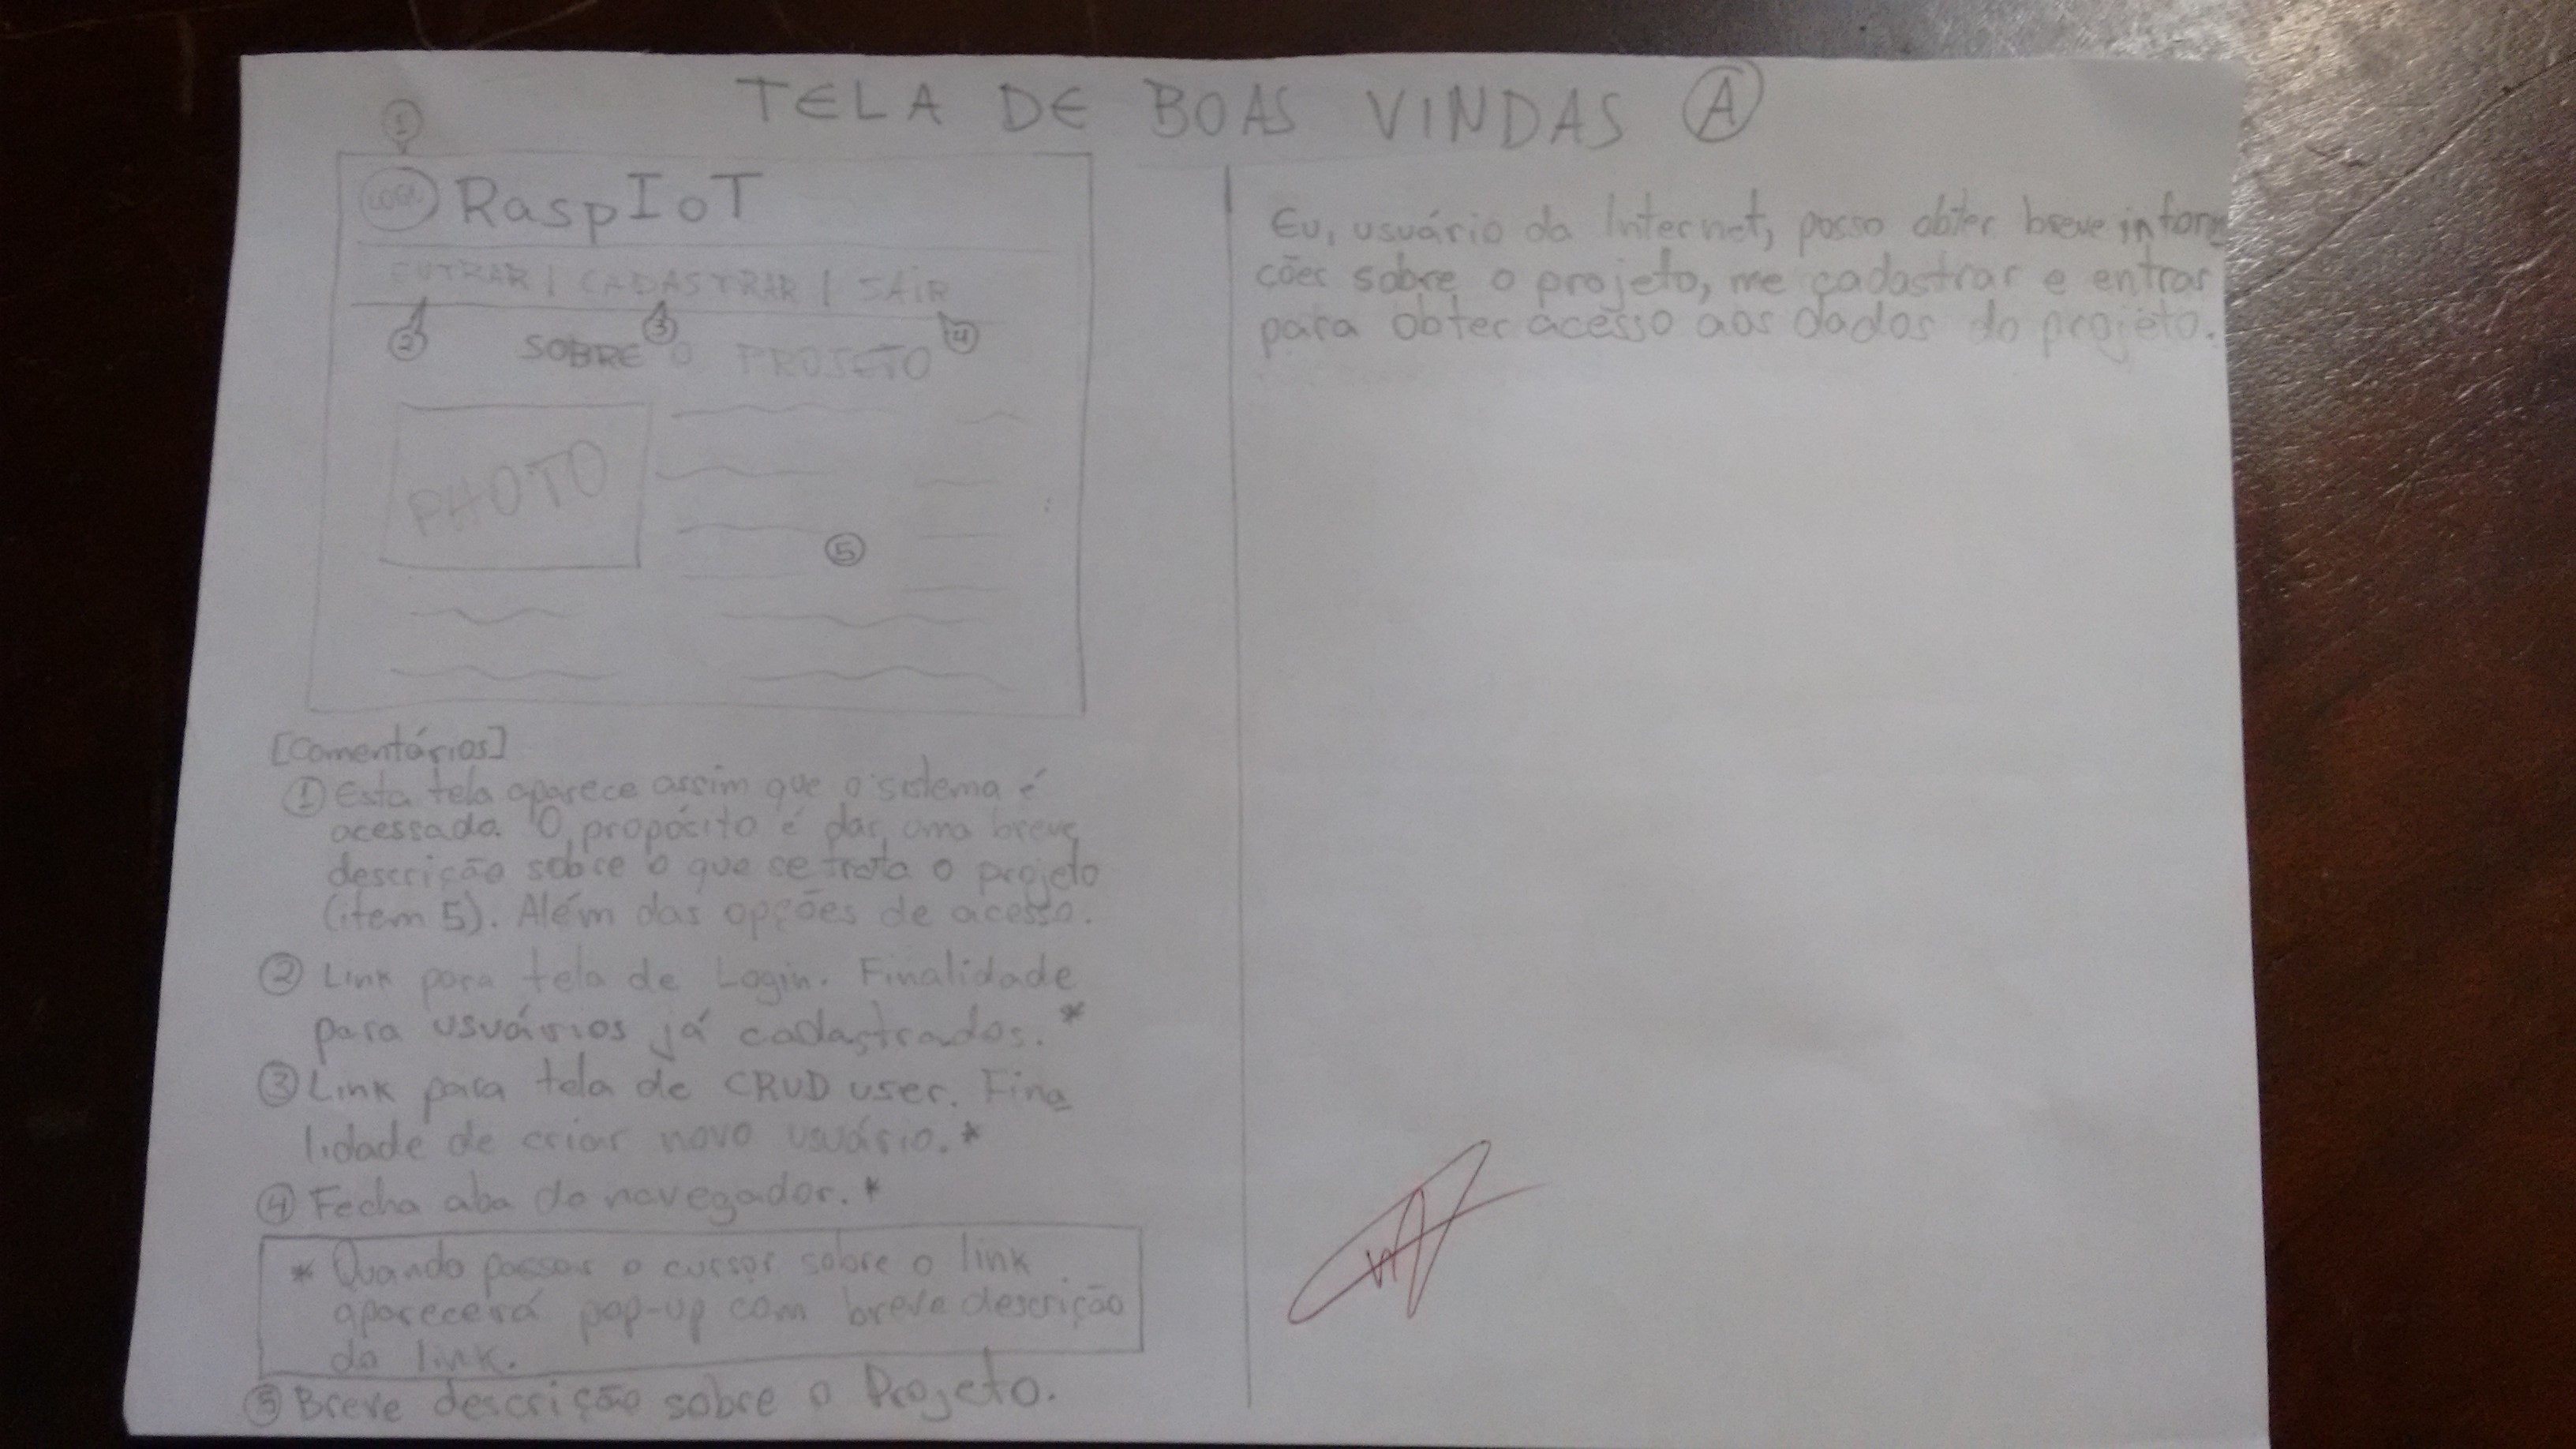 TELA DE BOAS VINDAS A
1
LOGO RaspIoT
ENTRAR | CADASTRAR | SAIR
2 3 4
SOBRE O PROJETO
PHOTO
5
[Comentários]
1 Esta tela aparece assim que o sistema é
acessado. O propósito é dar uma breve
descrição sobre o que se trata o projeto
(item 5). Além das opções de acesso.
2 Link para tela de Login. Finalidade
para usuários já cadastrados.*
3 Link para tela de CRUD user. Fina
lidade de criar novo usuário.*
4 Fecha aba do navegador.*
* Quando passar o cursor sobre o link
aparecerá pop-up com breve descrição
do link.
5 Breve descrição sobre o Projeto.
Eu, usuário da Internet, posso obter breve informa
ções sobre o projeto, me cadastrar e entrar
para obter acesso aos dados do projeto.